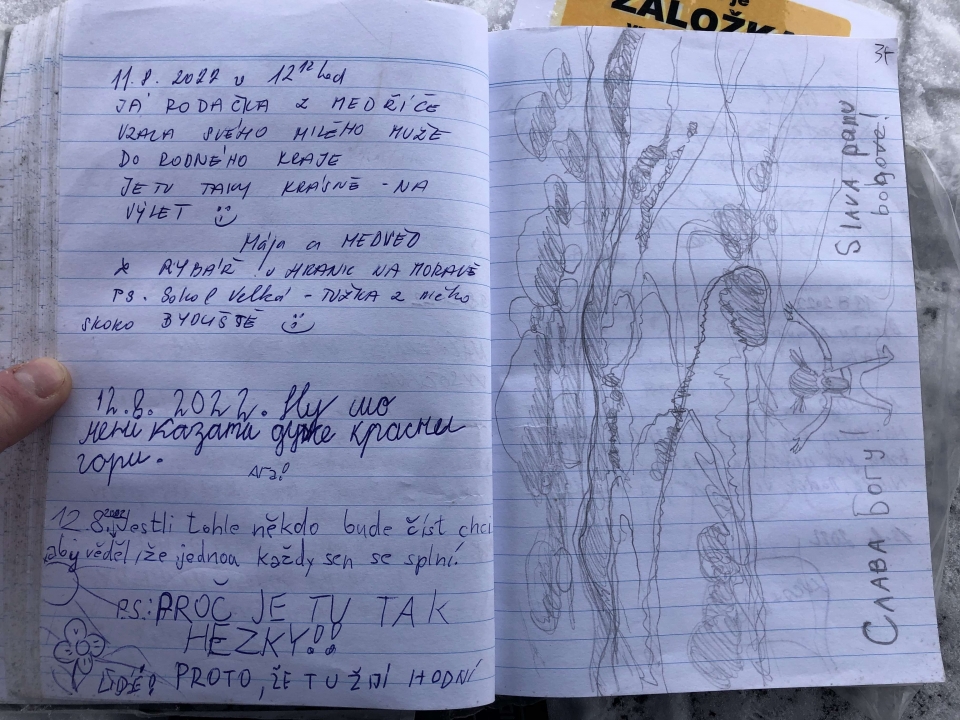 je
ZÁLOŽKA
11.8. 2022 v 12¹² hod
JÁ RODAČKA Z MEDŘICE
VZALA SVÉHO MILÉHO MUŽE
DO RODNÉHO KRAJE
JE TU TAKY KRÁSNĚ - NA
VÝLET
Mája a MEDVĚD
RYBÁŘ! v HRANIC NA MORAVĚ
PS. Sokol Velká - TUŽKA z něho
skoro BYDLIŠTĚ
12.8. 2022. Ну шо
мені казати дуже красиві
гори.
Ага!
12.8.2022 Jestli tohle někdo bude číst chci
aby věděl, že jednou každý sen se splní.
P.S.: PROČ JE TU TAK
HEZKY!!
LIDÉ! PROTO, ŽE TU ŽIJÍ HODNÍ
34
Sláva panu
bohovi!
Слава Богу!